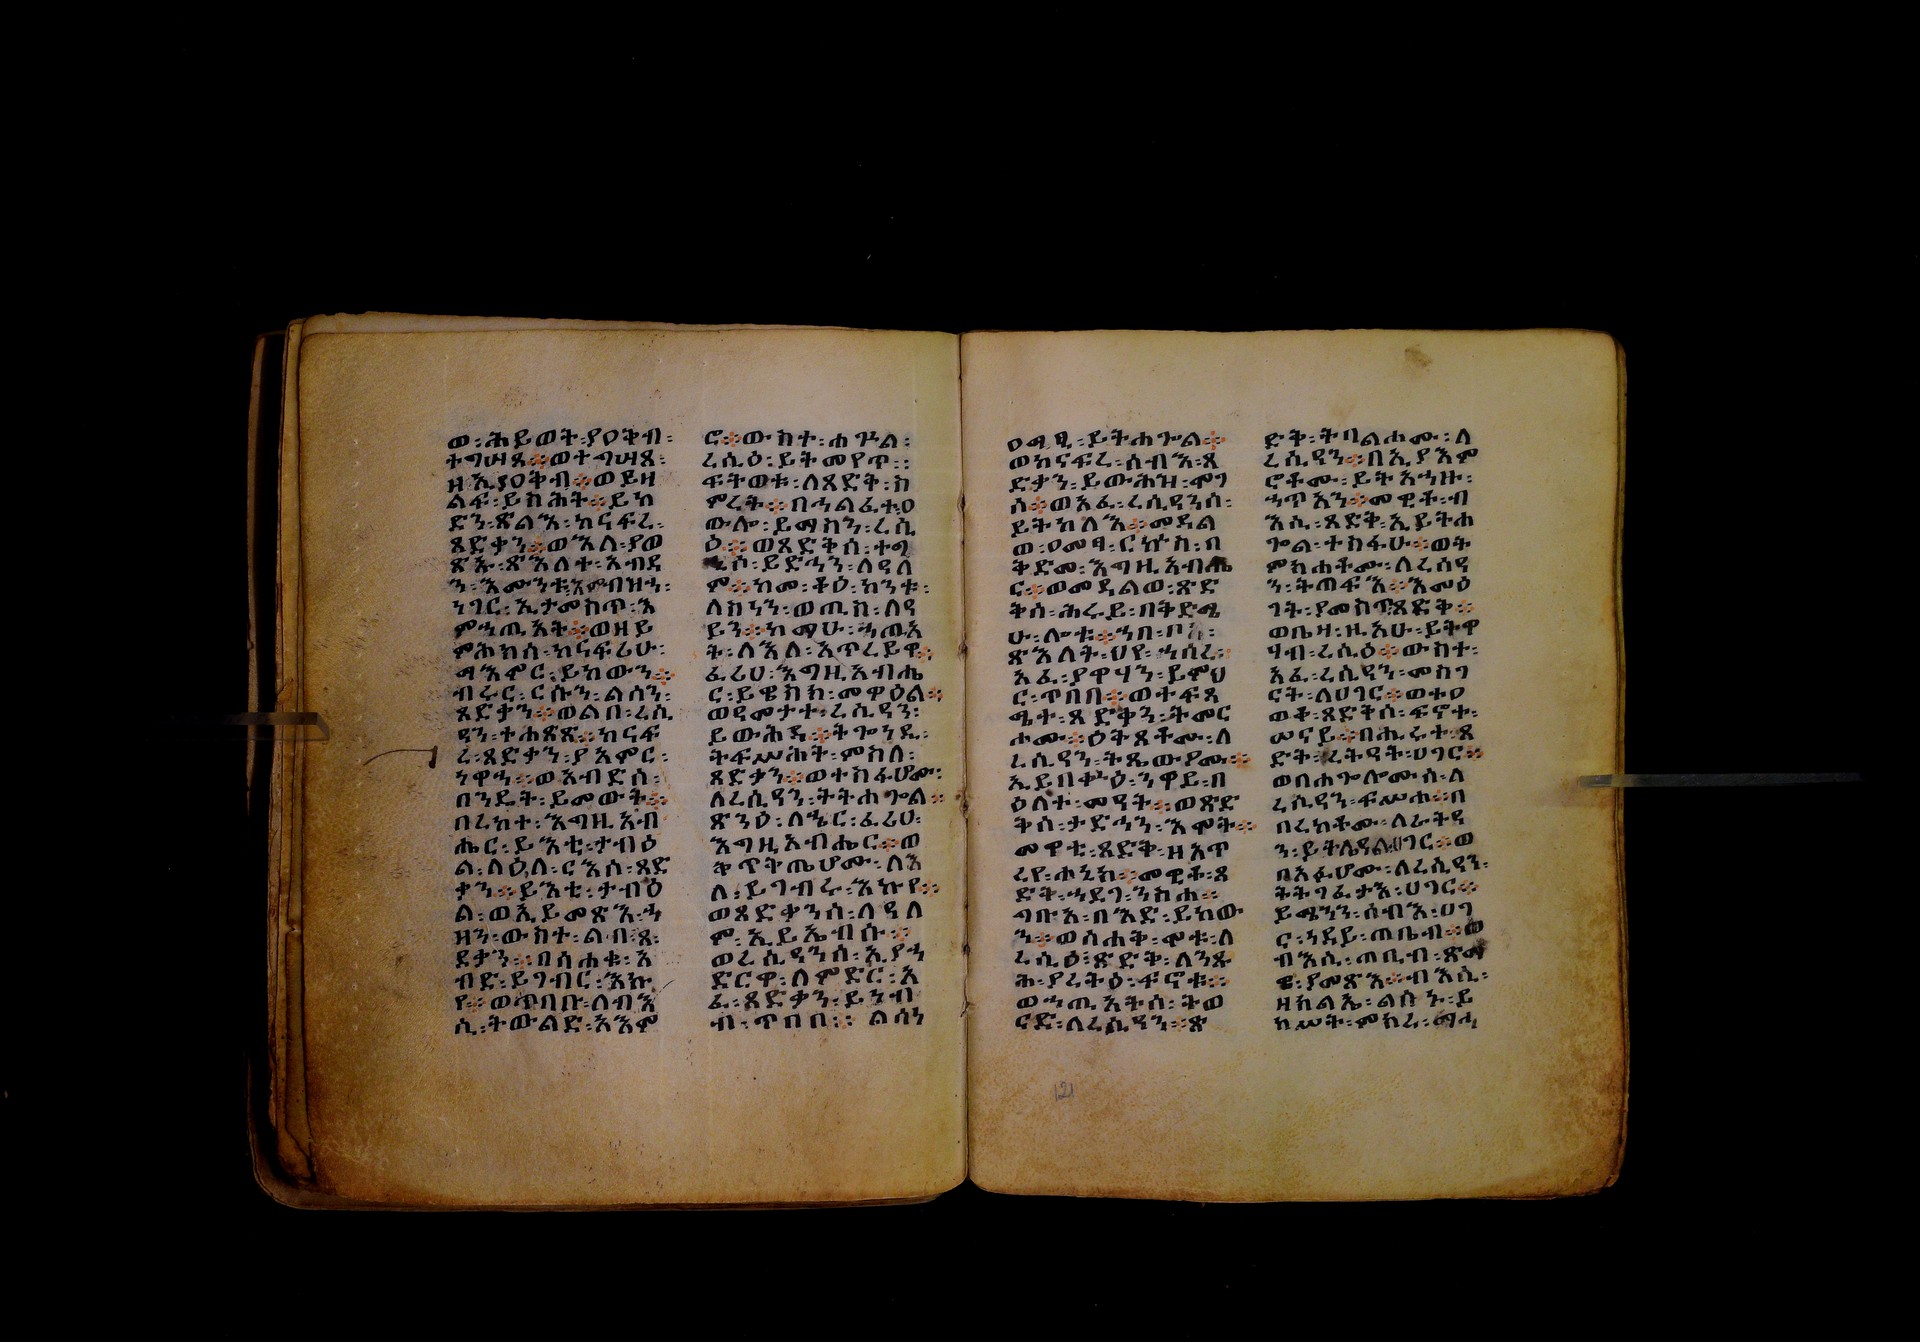 ወ፡ሕይወት፡ያዐቅብ፡
ተግሣጸ።ወተግሣጸ፡
ዘኢያዐቅብ።ወይዘ
ልፍ፡ይስሕት።ይክ
ድን፡ጽልአ፡ከናፍረ፡
ጸድቃን።ወእለ፡ያወ
ጽኡ፡ጽእለተ፡አብዳ
ን፡እሙንቱ፡እምብዝኀ፡
ነገር፡ኢታመስጥ፡እ
ምኀጢአት።ወዘይ
ምሕክሰ፡ከናፍሪሁ፡
ማእምር፡ይከውን።
ብሩር፡ርሱን፡ልሳን፡
ጸድቃን።ወልበ፡ረሲ
ዓን፡ተሐጽጽ።ከናፍ
ረ፡ጸድቃን፡ያአምር፡
ነዋኀ።ወአብድሰ፡
በንዴት፡ይመውት።
በረከተ፡እግዚአብ
ሔር፡ይእቲ፡ታብዕ
ል፡ለዕለ፡ርእሰ፡ጸድ
ቃን።ይእቲ፡ታብዕ
ል፡ወኢይመጽእ፡ኀ
ዘን፡ውስተ፡ልበ፡ጸ
ደቃን።በሰሐቁ፡አ
ብድ፡ይገብር፡እኩ
የ።ወጥበቡ፡ለብእ
ሲ፡ትውልድ፡አእም
ሮ።ውስተ፡ሐጕል፡
ረሲዕ፡ይትመየጥ፡
ፍትወቱ፡ለጸድቅ፡ስ
ምረት።በኀልፈተ፡ዐ
ውሎ፡ይማስን፡ረሲ
ዕ።ወጸድቅሰ፡ተግ
ኂሶ፡ይድኅን፡ለዓለ
ም።ከመ፡ቆዕ፡ከንቱ፡
ለስነን፡ወጢስ፡ለዓ
ይን።ከማሁ፡ኀጢአ
ት፡ለእለ፡አጥረይዋ።
ፈሪሀ፡እግዚአብሔ
ር፡ይዌስክ፡መዋዕል።
ወዓመታተ፡ረሲዓን፡
ይውሕዳ።ትጐነዲ፡
ትፍሥሕት፡ምስለ፡
ጸድቃን።ወተስፋሆሙ፡
ለረሲዓን፡ትትሐጐል።
ጽንዕ፡ለኄር፡ፈሪሀ፡
እግዚአብሔር።ወ
ቅጥቅጤሆሙ፡ለእ
ለ፡ይገብሩ፡እኩየ።
ወጸድቃንሰ፡ለዓለ
ም፡ኢይኤብሱ።
ወረሲዓንሰ፡ኢያኀ
ድርዋ፡ለምድር፡አ
ፈ፡ጸድቃን፡ይነብ
ብ፡ጥበበ። ልሳነ
ዐማፂ፡ይትሐጐል።
ወከናፍረ፡ሰብእ፡ጸ
ድቃን፡ይውሕዝ፡ሞገ
ሰ።ወአፈ፡ረሲዓንሰ፡
ይትከለእ።መዳል
ወ፡ዐመፃ፡ርኩስ፡በ
ቅድመ፡እግዚአብሔ
ር።ወመዳልወ፡ጽድ
ቅሰ፡ሕሩይ፡በቅድሜ
ሁ፡ሎቱ።ኀበ፡ቦአ፡
ጽእለት፡ህየ፡ኀሰረ፡
አፈ፡ያዋሃን፡ይምህ
ር፡ጥበበ።ወተፍጻ
ሜተ፡ጸድቅን፡ትመር
ሐሙ።ዕቅጸቶሙ፡ለ
ረሲዓን፡ትጼውዖሙ።
ኢይበቍዕ፡ንዋይ፡በ
ዕለተ፡መዓት።ወጽድ
ቅሰ፡ታድኅን፡እሞት።
መዋቲ፡ጸድቅ፡ዘአጥ
ረየ፡ሐኒክ።መዊቶ፡ጸ
ድቅ፡ኀደገ፡ንስሐ።
ግቡእ፡በእድ፡ይከው
ን።ወሰሐቅ፡ሞቱ፡ለ
ረሲዕ፡ጽድቅ፡ለንጹ
ሕ፡ያረትዕ፡ፍኖቱ።
ወኀጢአትሰ፡ትወ
ርድ፡ለረሲዓን።ጽ
121
ድቅ፡ትባልሐሙ፡ለ
ረሲዓን።በኢያእም
ሮቶሙ፡ይትአኀዙ፡
ኀጥአን።መዊቶ፡ብ
እሲ፡ጸድቅ፡ኢይትሐ
ጐል፡ተስፋሁ።ወት
ምክሐቶሙ፡ለረሰዓ
ን፡ትጠፍእ።እመዕ
ገት፡ያመስጥ፡ጸድቅ።
ወቤዛ፡ዚአሁ፡ይትዋ
ሃብ፡ረሲዕ።ውስተ፡
አፈ፡ረሲዓን፡መስገ
ርት፡ለሀገር።ወተዐ
ውቆ፡ጸድቅሰ፡ፍኖተ፡
ሠናይ።በሒሩተ፡ጸ
ድት፡ረትዓት፡ሀገር።
ወበሐጐሎሙሰ፡ለ
ረሲዓን፡ፍሥሐ።በ
በረከቶሙ፡ለራትዓ
ን፡ይትሌዓል፡ሀገር።ወ
በአፉሆሙ፡ለረሲዓን፡
ትትገፈታእ፡ሀገር።
ይሜንን፡ሰብአ፡ሀገ
ር፡ነዳይ፡ጠቢብ።ወ
ብእሲ፡ጠቢብ፡ጽማ
ዌ፡ያመጽእ።ብእሲ፡
ዘክልኤ፡ልሳኑ፡ይ
ከሥት፡ምክረ፡ማኅ